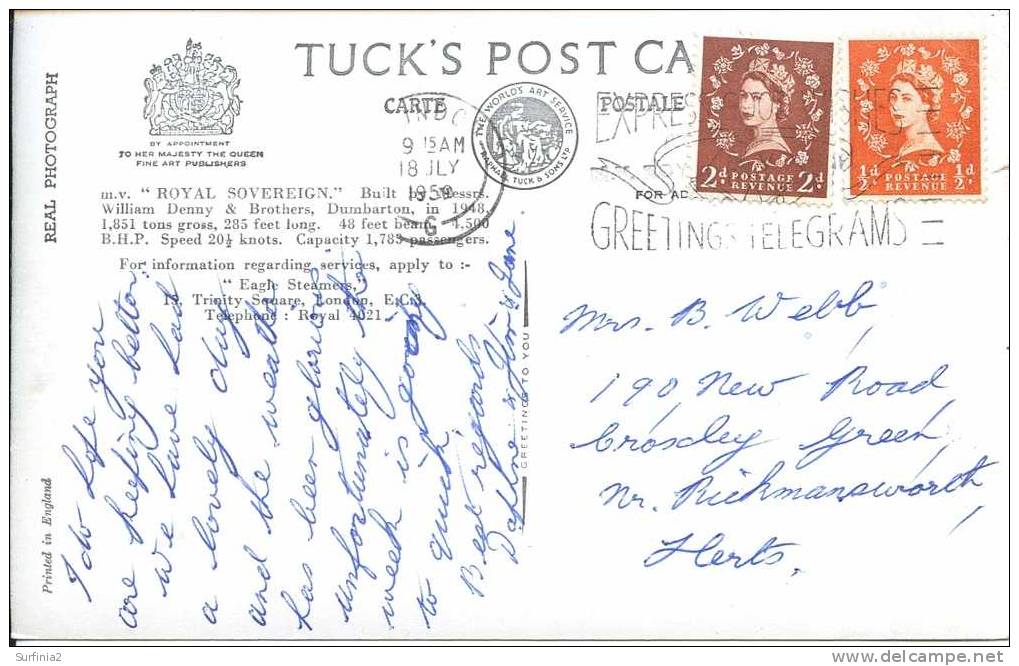 TUCK'S POST CA
CARTE POSTALE
REAL PHOTOGRAPH
BY APPOINTMENT
TO HER MAJESTY THE QUEEN
FINE ART PUBLISHERS
THE WORLD'S ART SERVICE
RAPHAEL TUCK & SONS LTD
9 15 AM
18 JLY
1959
G
EXPRESS
GREETINGS TELEGRAMS
FOR AD
2D POSTAGE REVENUE 2D
½D POSTAGE REVENUE ½D
m.v. "ROYAL SOVEREIGN." Built by Messrs.
William Denny & Brothers, Dumbarton, in 1948,
1,851 tons gross, 285 feet long. 48 feet beam. 4,500
B.H.P. Speed 20½ knots. Capacity 1,783 passengers.
For information regarding services, apply to :-
"Eagle Steamers,"
15, Trinity Square, London, E.C.3.
Telephone : Royal 4021.
Printed in England
GREETINGS TO YOU
I do hope you
are keeping better.
We have had
a lovely day
and the weather
has been glorious
unfortunately the
week is going
to quick.
Best regards
Daphne & Jim & Jane
Mrs. B. Webb,
190, New Road,
Croxley Green,
Nr. Rickmansworth,
Herts.
Surfinia2
www.delcampe.net